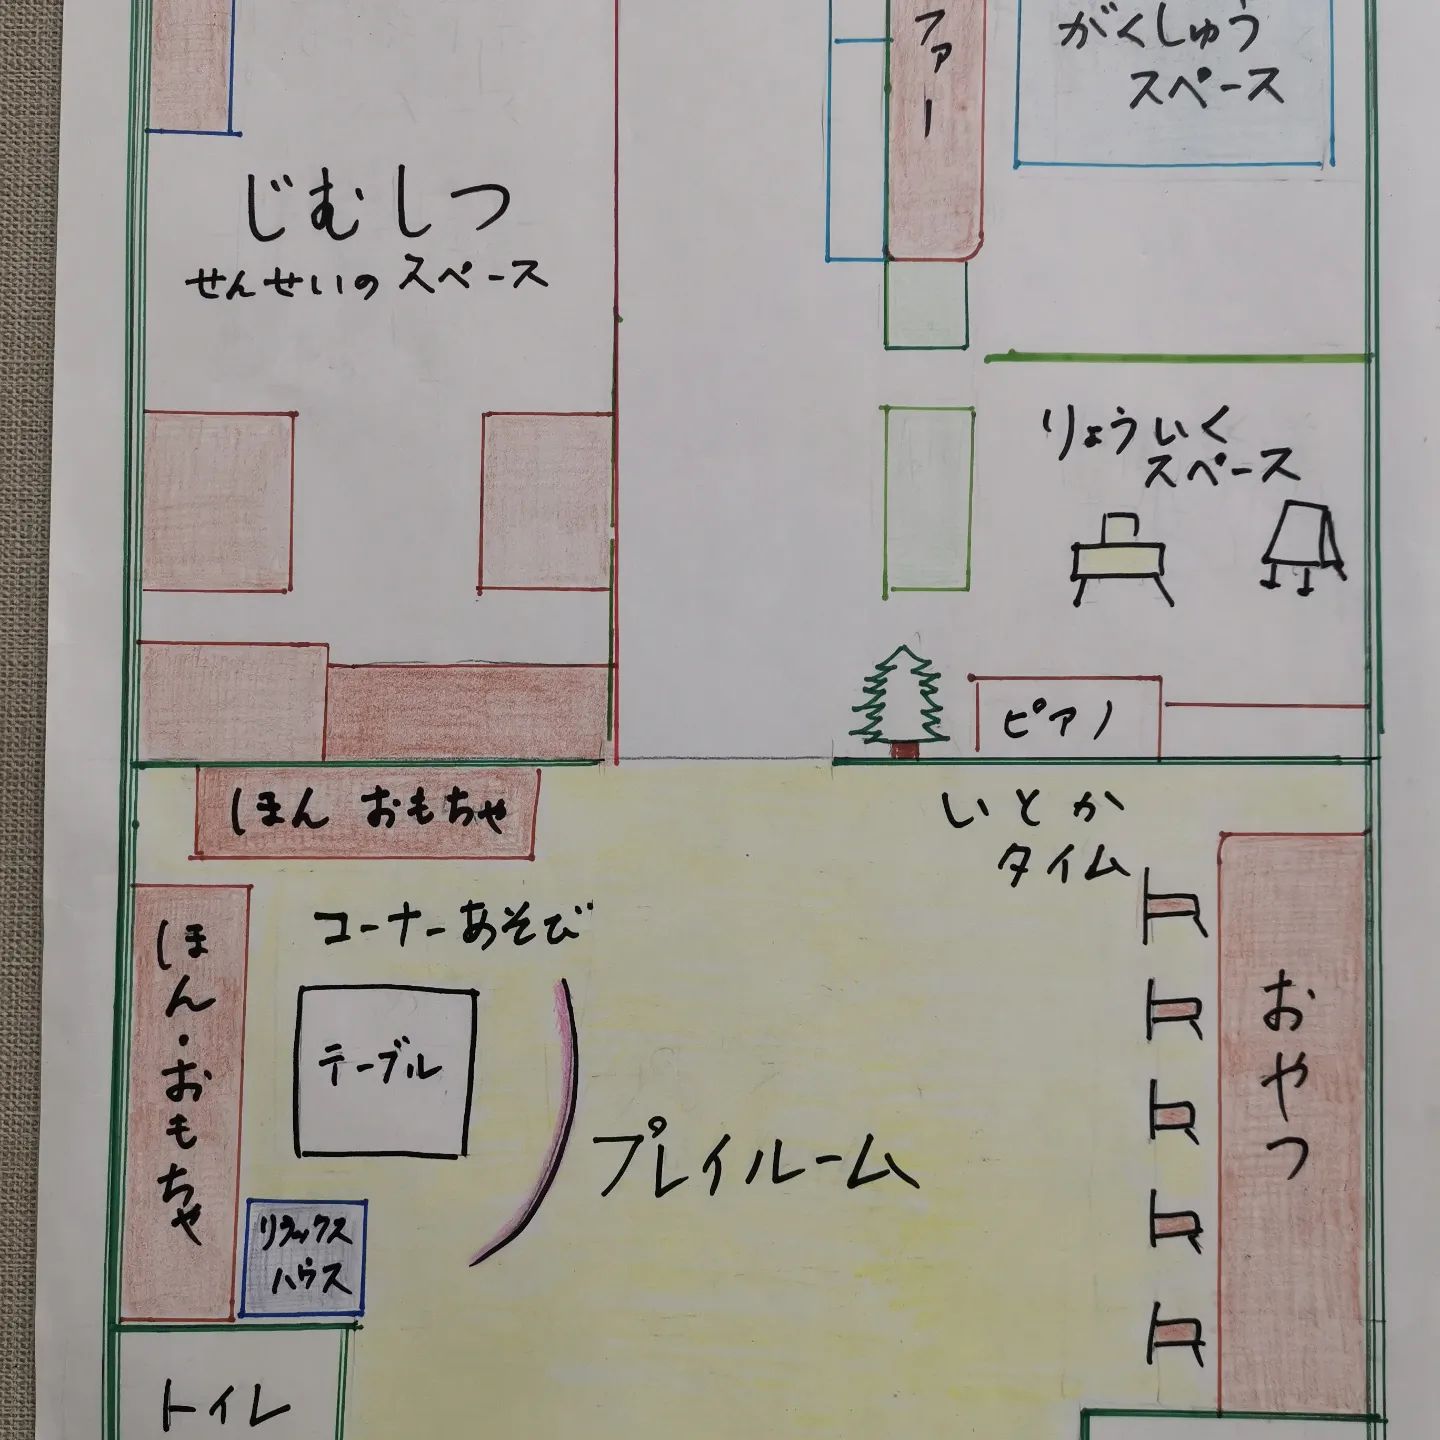 ファー
がくしゅう
スペース
じむしつ
せんせいの スペース
りょういく
スペース
ピアノ
ほん おもちゃ
いとか
タイム
コーナーあそび
ほん・おもちゃ
テーブル
プレイルーム
おやつ
リラックス
ハウス
トイレ